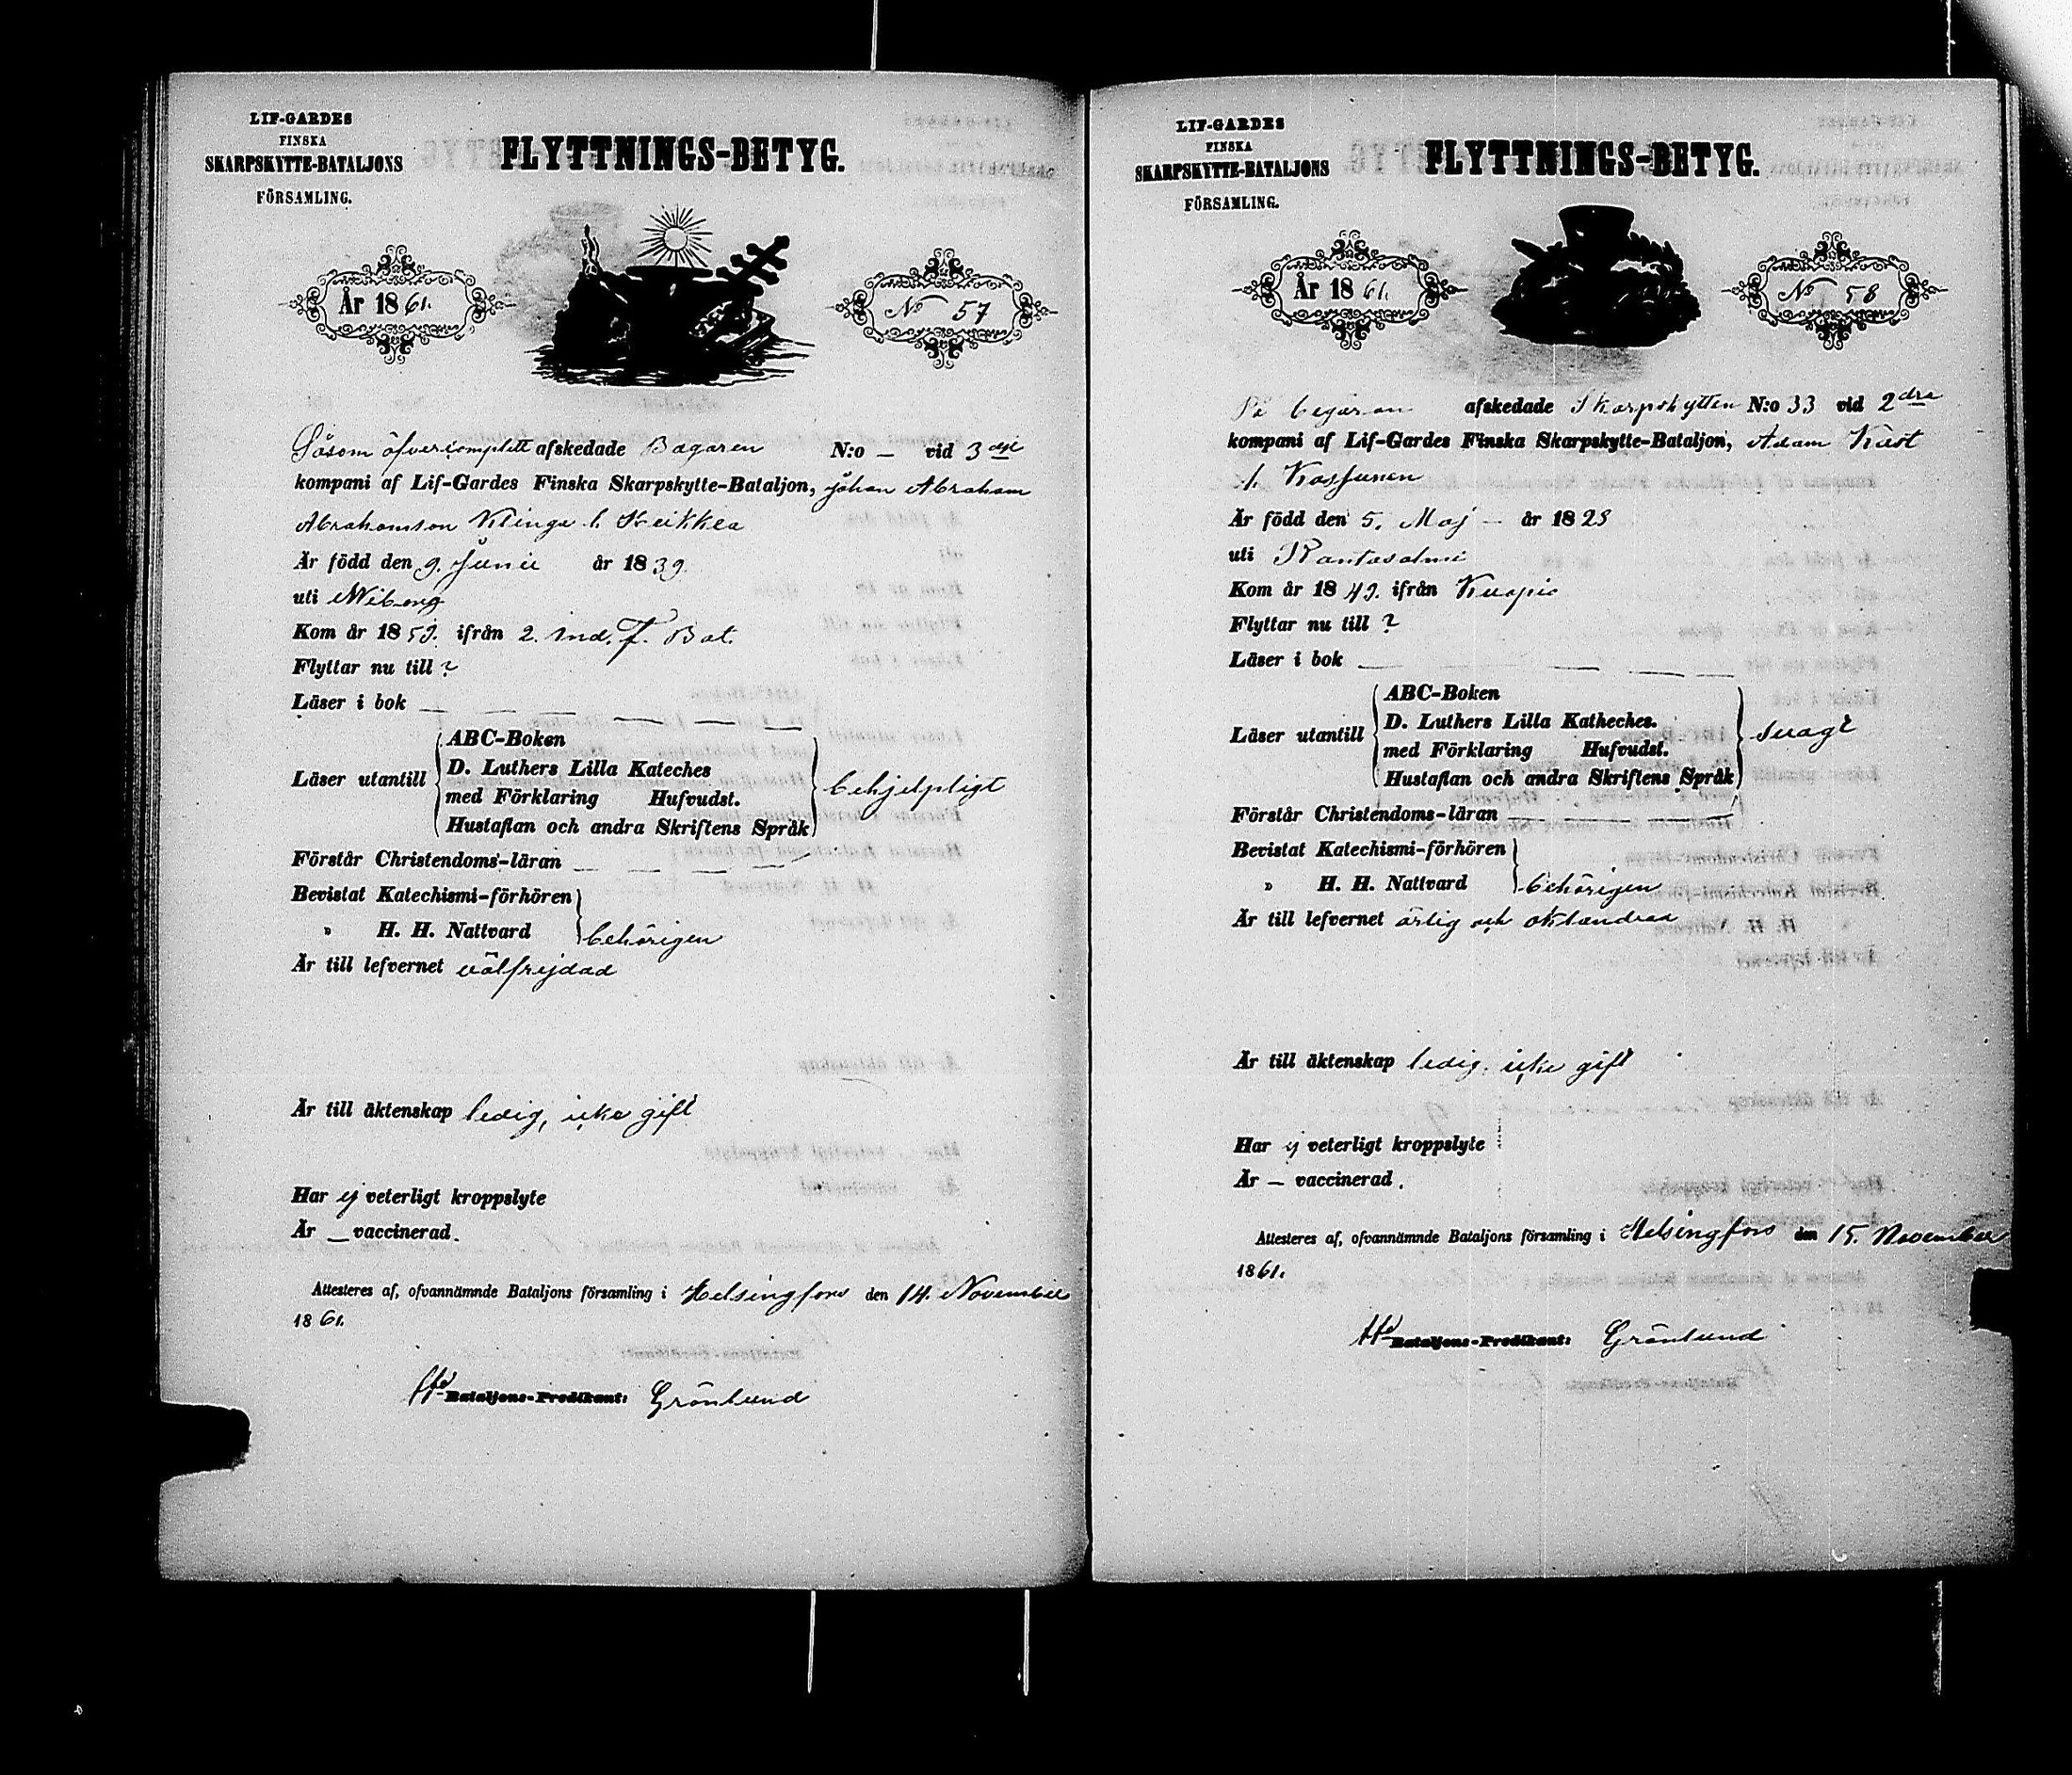 LIF-GARDES
FINSKA
SKARPSKYTTE-BATALJONS
FÖRSAMLING.
FLYTTNINGS-BETYG.
År 1861.
No 57
Såsom öfvercomplett afskedade Bagaren N:o — vid 3dje
kompani af Lif-Gardes Finska Skarpskytte-Bataljon, Johan Abraham
Abrahamson Klinga l. Heikkea
Är född den 9. Junii år 1839.
uti Wiborg
Kom år 1859. ifrån 2. Ind. F. Bat.
Flyttar nu till ?
Läser i bok — — — — —
Läser utantill
ABC-Boken
D. Luthers Lilla Kateches
med Förklaring Hufvudst.
Hustaflan och andra Skriftens Språk
behjelpligt
Förstår Christendoms-läran — — — —
Bevistat Katechismi-förhören
" H. H. Nattvard behörigen
Är till lefvernet välfrejdad
Är till äktenskap ledig, icke gift
Har ej veterligt kroppslyte
Är — vaccinerad.
Attesteres af, ofvannämnde Bataljons församling i Helsingfors den 14. November
1861.
Bataljons-Predikant: Grönlund
LIF-GARDES
FINSKA
SKARPSKYTTE-BATALJONS
FÖRSAMLING.
FLYTTNINGS-BETYG.
År 1861.
No 58
På begäran afskedade Skarpskytten N:o 33 vid 2dra
kompani af Lif-Gardes Finska Skarpskytte-Bataljon, Adam Kast
l. Kossunen
Är född den 5. Maj — år 1828
uti Rantasalmi
Kom år 1849. ifrån Kuopio
Flyttar nu till ?
Läser i bok — — — —
Läser utantill
ABC-Boken
D. Luthers Lilla Katheches.
med Förklaring Hufvudst.
Hustaflan och andra Skriftens Språk
svagt
Förstår Christendoms-läran — — — —
Bevistat Katechismi-förhören
" H. H. Nattvard behörigen
Är till lefvernet ärlig och oklandrad
Är till äktenskap ledig, icke gift
Har ej veterligt kroppslyte
Är — vaccinerad.
Attesteres af, ofvannämnde Bataljons församling i Helsingfors den 15. November
1861.
Bataljons-Predikant: Grönlund